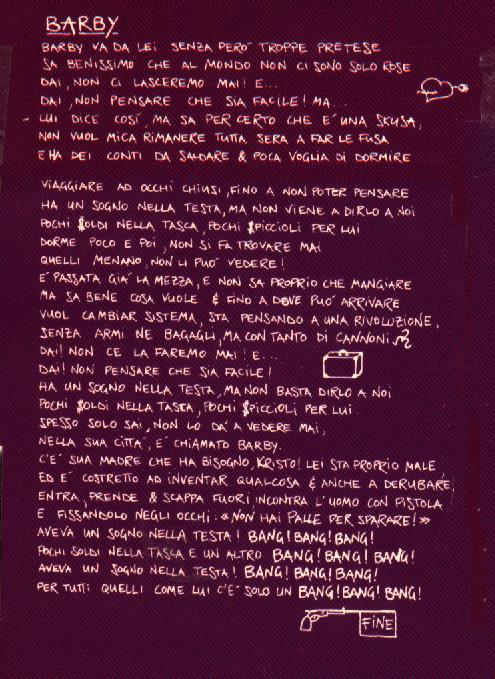 BARBY
BARBY VA DA LEI SENZA PERO' TROPPE PRETESE
SA BENISSIMO CHE AL MONDO NON CI SONO SOLO ROSE
DAI, NON CI LASCEREMO MAI! E...
DAI, NON PENSARE CHE SIA FACILE! MA...
LUI DICE COSI', MA SA PER CERTO CHE E' UNA SKUSA,
NON VUOL MICA RIMANERE TUTTA SERA A FAR LE FUSA
E HA DEI CONTI DA SALDARE & POCA VOGLIA DI DORMIRE
VIAGGIARE AD OCCHI CHIUSI, FINO A NON POTER PENSARE
HA UN SOGNO NELLA TESTA, MA NON VIENE A DIRLO A NOI
POCHI $OLDI NELLA TASCA, POCHI $PICCIOLI PER LUI
DORME POCO E POI, NON SI FA TROVARE MAI
QUELLI MENANO, NON LI PUO' VEDERE!
E' PASSATA GIA' LA MEZZA, E NON SA PROPRIO CHE MANGIARE
MA SA BENE COSA VUOLE & FINO A DOVE PUO' ARRIVARE
VUOL CAMBIAR SISTEMA, STA PENSANDO A UNA RIVOLUZIONE,
SENZA ARMI NE BAGAGLI, MA CON TANTO DI CANNONI
DAI! NON CE LA FAREMO MAI! E...
DAI! NON PENSARE CHE SIA FACILE!
HA UN SOGNO NELLA TESTA, MA NON BASTA DIRLO A NOI
POCHI $OLDI NELLA TASTA, POCHI $PICCIOLI PER LUI
SPESSO SOLO SAI, NON LO DA' A VEDERE MAI,
NELLA SUA CITTA', E' CHIAMATO BARBY.
C'E' SUA MADRE CHE HA BISOGNO, KRISTO! LEI STA PROPRIO MALE,
ED E' COSTRETTO AD INVENTAR QUALCOSA & ANCHE A DERUBARE,
ENTRA, PRENDE & SCAPPA FUORI, INCONTRA L'UOMO CON PISTOLA
E FISSANDOLO NEGLI OCCHI: «NON HAI PALLE PER SPARARE!»
AVEVA UN SOGNO NELLA TESTA! BANG! BANG! BANG!
POCHI SOLDI NELLA TASCA E UN ALTRO BANG! BANG! BANG!
AVEVA UN SOGNO NELLA TESTA! BANG! BANG! BANG!
PER TUTTI QUELLI COME LUI C'E' SOLO UN BANG! BANG! BANG!
FINE